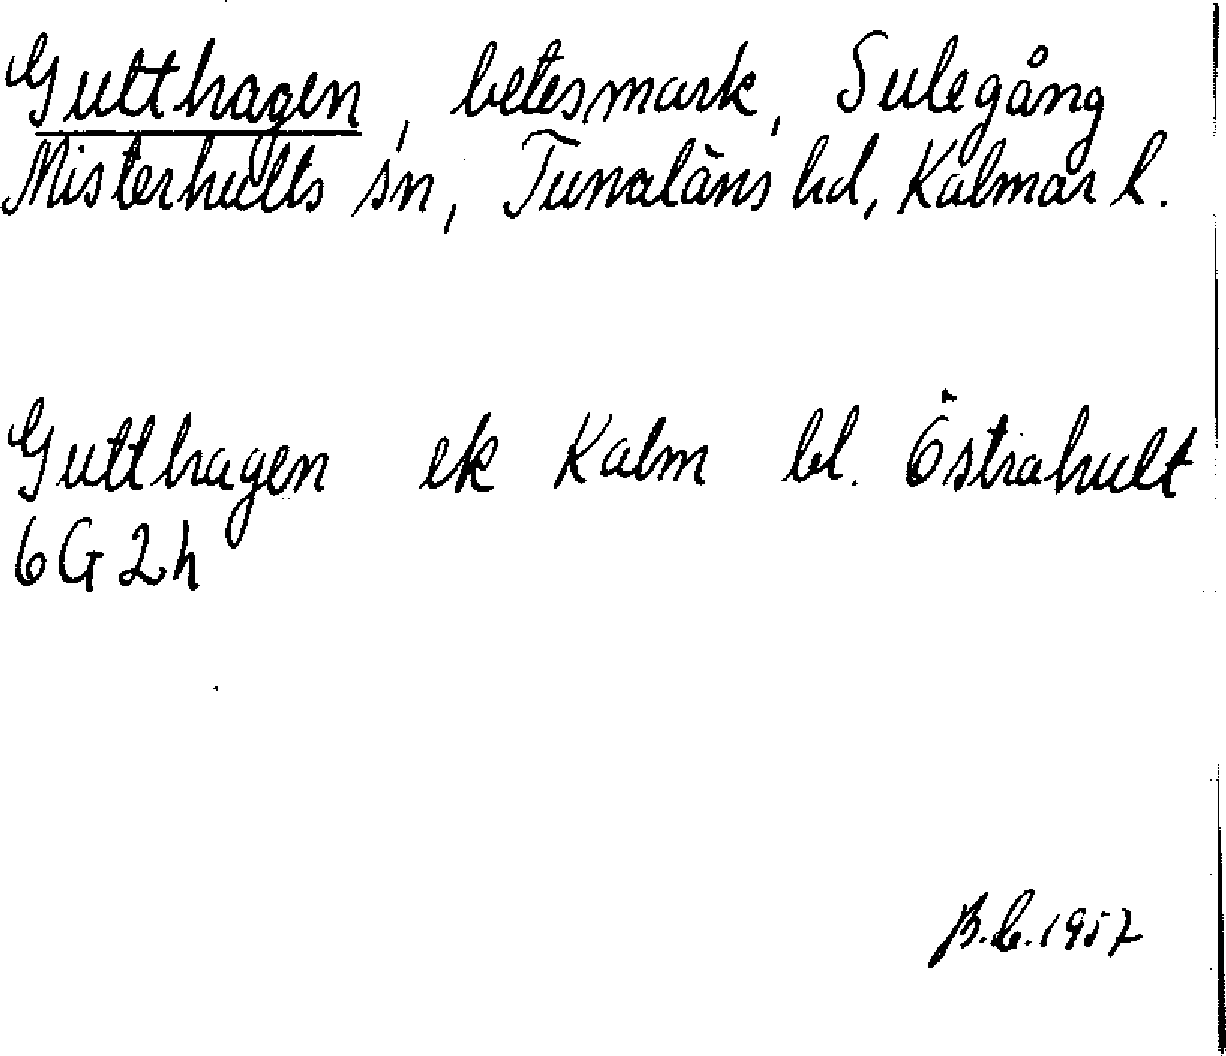 Gutthagen, betesmark, Sulegång
Misterhults sn, Tunaläns hd, Kalmar l.
Gutthagen ek Kalm bl. Östrahult
6G2h
B.C. 1957